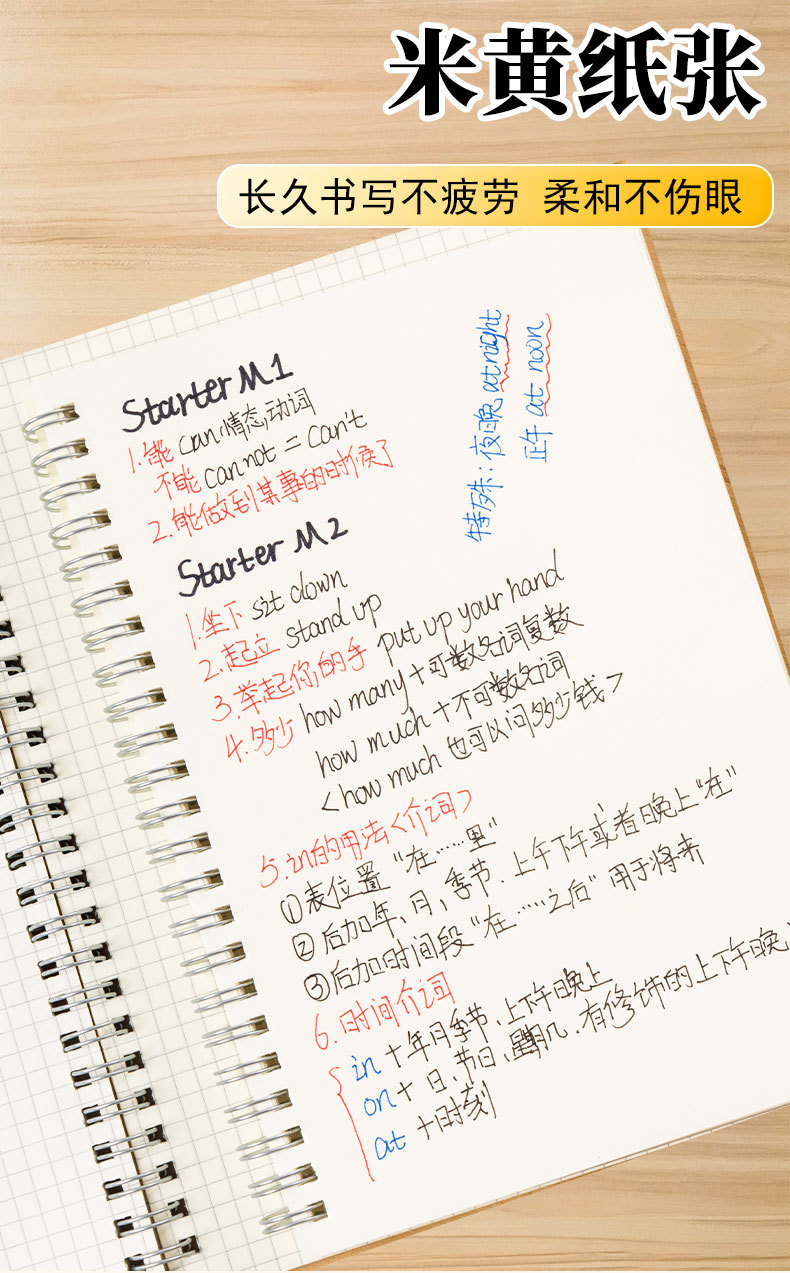 米黄纸张
长久书写不疲劳 柔和不伤眼
Starter M1
1.能 can 情态动词
不能 cannot = can't
2.能做到某事的时候了
特殊：夜晚 at night
正午 at noon
Starter M2
1.坐下 sit down
2.起立 stand up
3.举起你的手 put up your hand
4.多少 how many+可数名词复数
how much +不可数名词
<how much 也可以问多少钱>
5.in的用法<介词>
①表位置"在……里"
②后加年、月、季节.上午下午或者晚上"在"
③后加时间段"在……之后"用于将来
6.时间介词
in +年月季节、上下午晚上
on+ 日、节日、星期几.有修饰的上下午晚
at +时刻